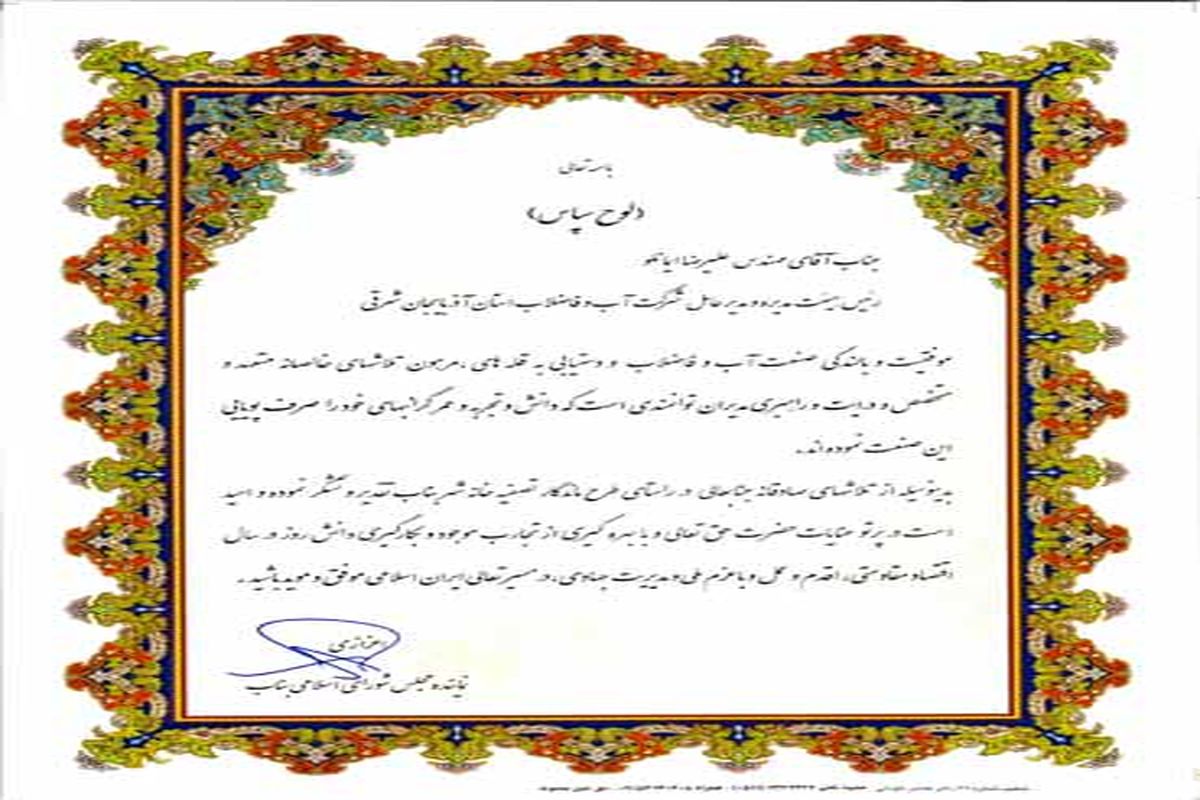 باسمه تعالی
(لوح سپاس)
جناب آقای مهندس علیرضا ایمانلو
رئیس هیئت مدیره و مدیر عامل شرکت آب و فاضلاب استان آذربایجان شرقی
موفقیت و بالندگی صنعت آب و فاضلاب و دستیابی به قله های ، مرهون تلاشهای خالصانه متعهد و
متخصص و درایت و راهبری مدیران توانمندی است که دانش و تجربه و عمر گرانبهای خود را صرف پویایی
این صنعت نموده اند.
بدینوسیله از تلاشهای صادقانه جنابعالی در راستای طرح ماندگار تصفیه خانه شهر بناب تقدیر و تشکر نموده و امید
است در پرتو عنایات حضرت حق تعالی و با بهره گیری از تجارب موجود و بکارگیری دانش روز در سال
اقتصاد مقاومتی، اقدام و عمل و با عزم ملی و مدیریت جهادی، در مسیر تعالی ایران اسلامی موفق و موید باشید.
اعزازی
نماینده مجلس شورای اسلامی بناب